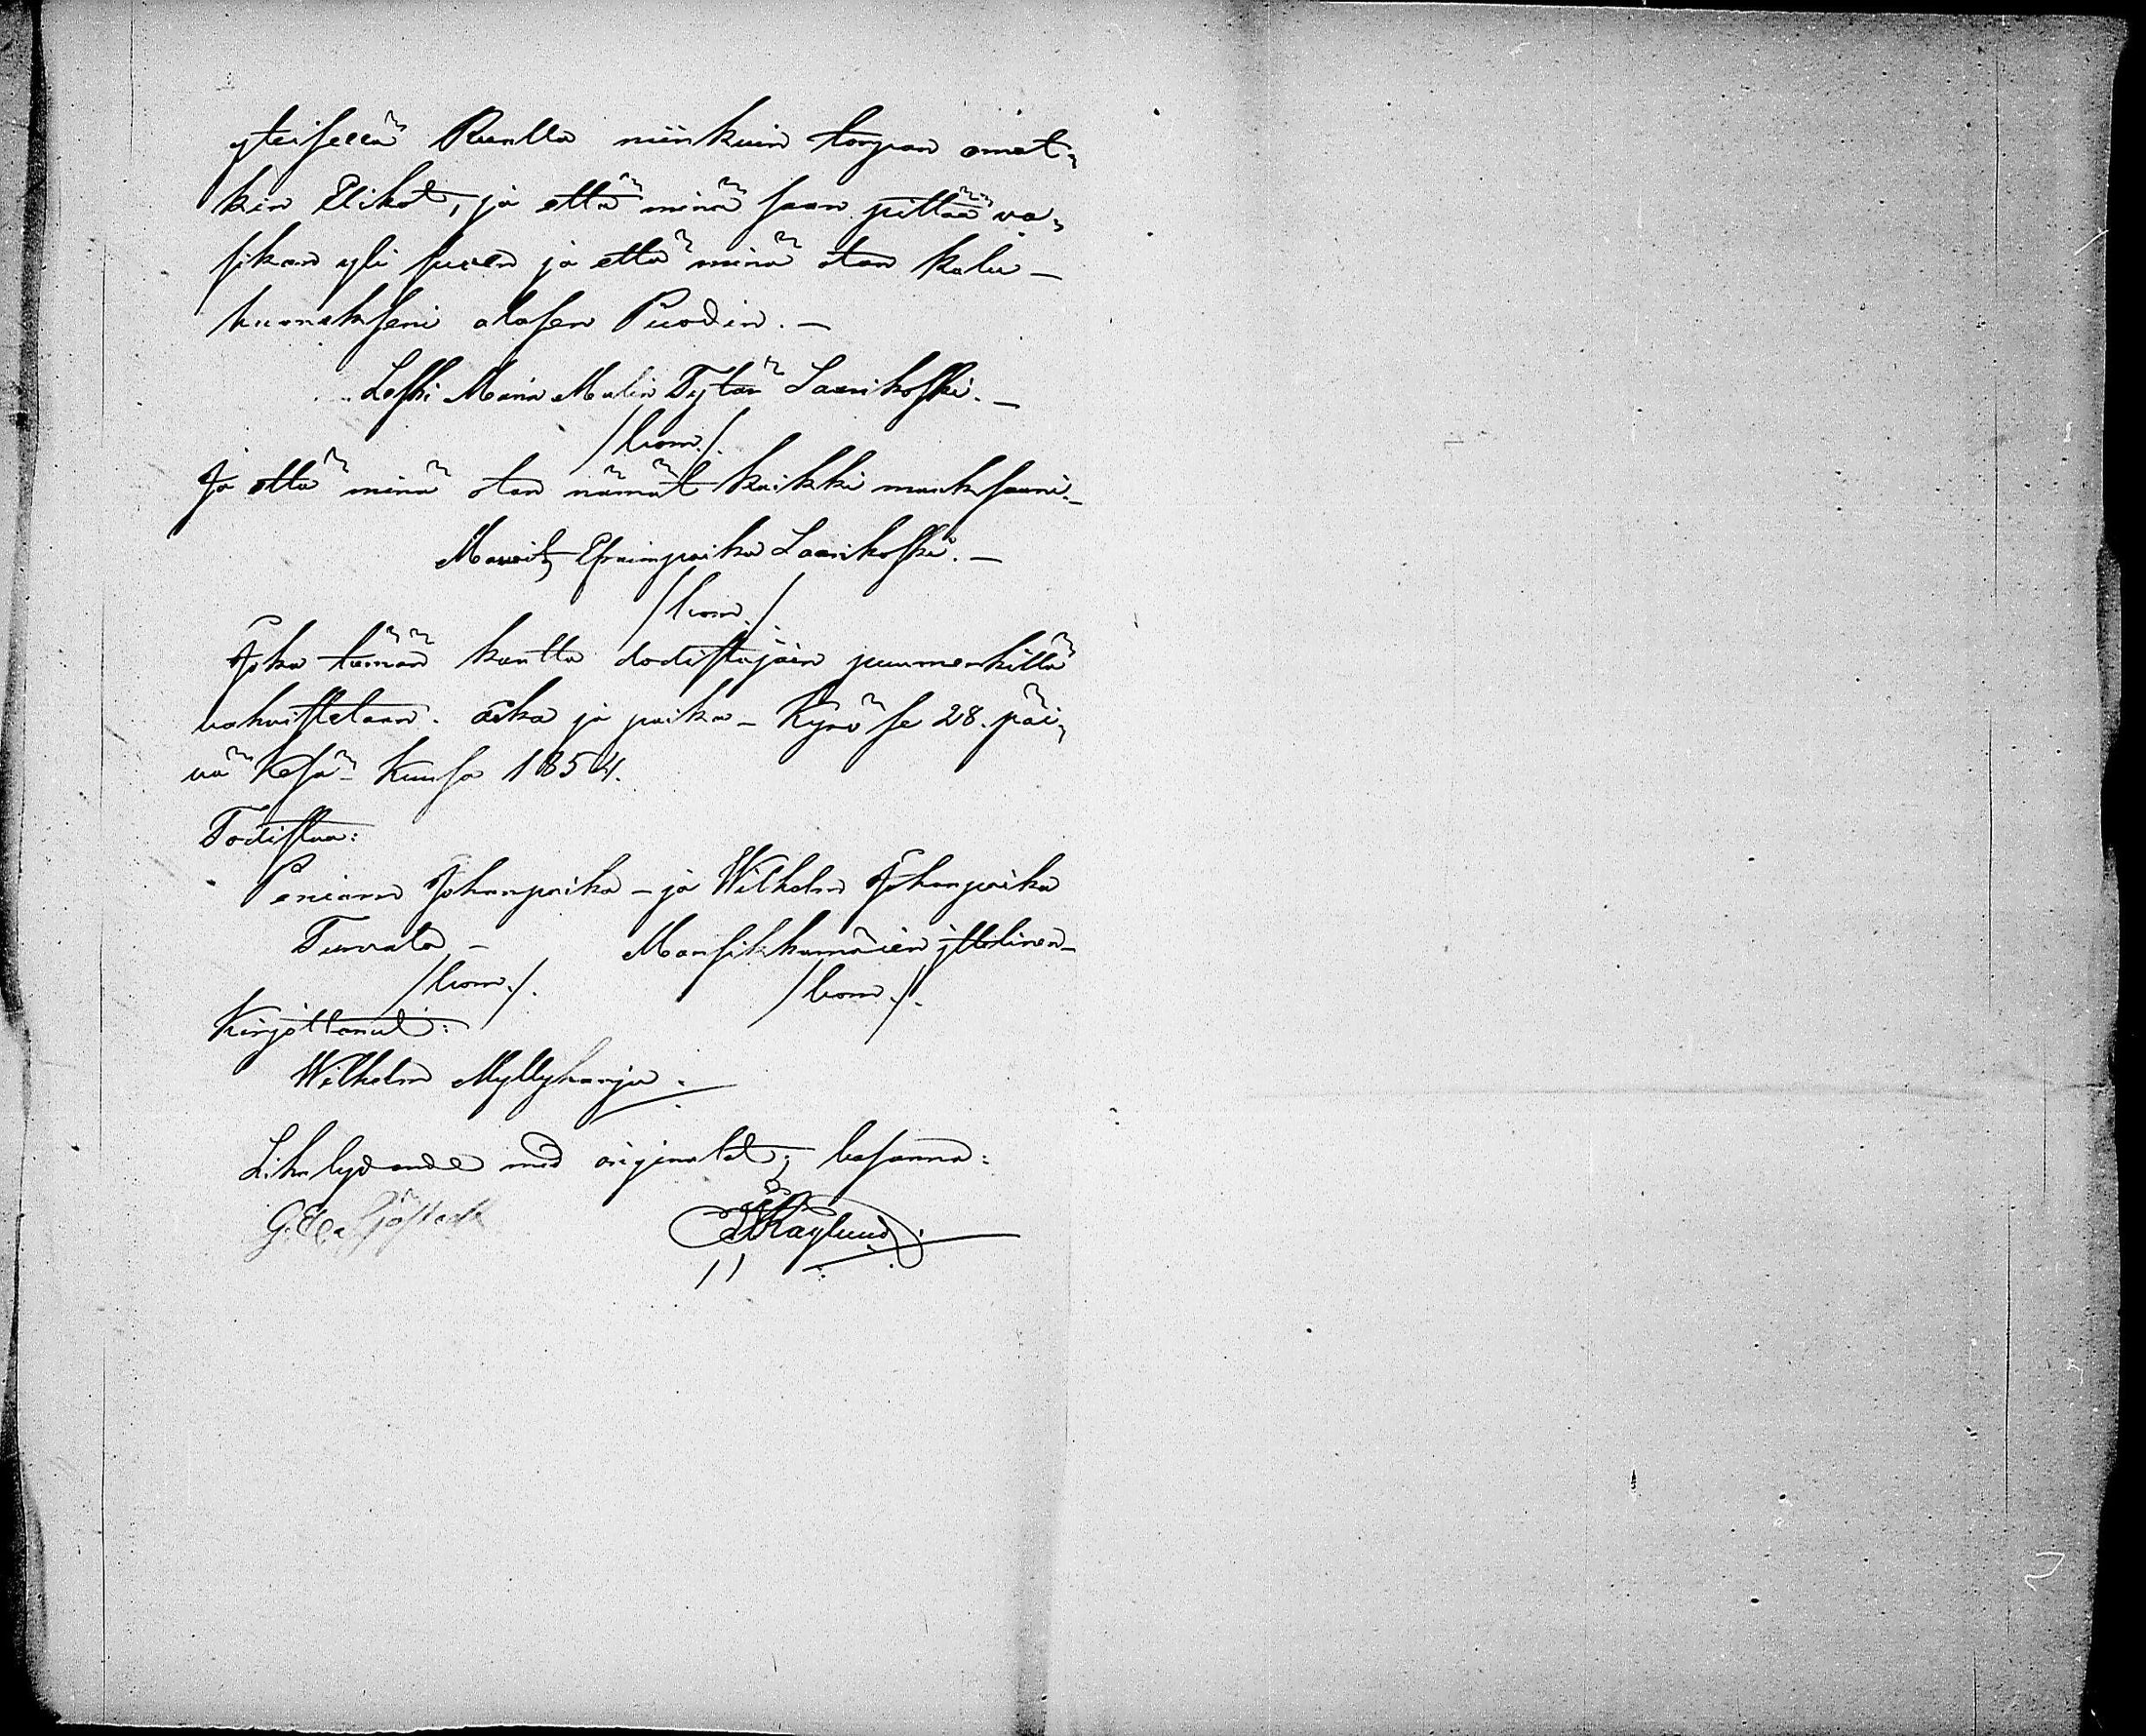 yteisellä Ruulla niinkuin torpan omat-
kin Elikot, ja että minä saan pittää va-
sikan yli suven ja että minä otan kalu-
huonekseni alasen Puodin. -
Leski Maria Malin Tytär Laarikoski. -
/bom./.
Ja että minä otan nämät kaikki maakseni. -
Mauritz Efraimpoika Laarikoski. -
/bom./
Joka tämän kautta todistajain puumerkillä
vahvistetaan. Aika ja paika - Kyrö se 28. päi-
vä Kesä-Kuusa 1854.
Todistaa:
Peniam Johanpoika - ja Wilhelm Johanpoika
Turvala - Mansikkamäien ittelinen -
/bom./. /bom./.
Kirjottanut:
Wilhelm Myllyharju.
Lika lydande med originalet; besanna: